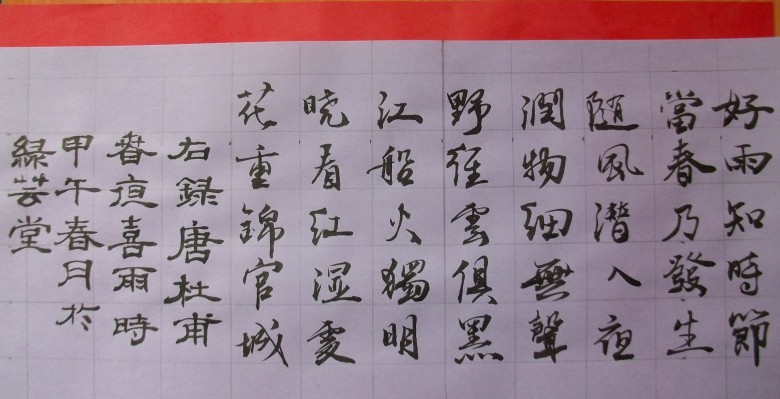 好雨知時節
當春乃發生
随風潛入夜
潤物細無聲
野徑雲俱黑
江船火獨明
晓看红湿處
花重錦官城
右録唐杜甫
春夜喜雨時
甲午春月於
緑芸堂